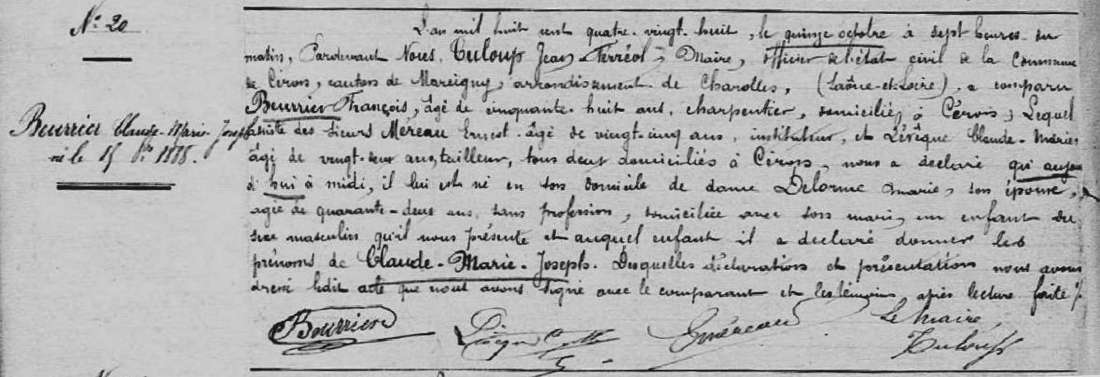 N° 20
Beurrier Claude-Marie-Joseph
né le 15 8bre 1888.
L'an mil huit cent quatre-vingt-huit, le quinze octobre à sept heures du
matin, Pardevant Nous, Tuloup Jean-Ferréol, Maire, officier de l'état civil de la Commune
de Ciron, canton de Marcigny, arrondissement de Charolles, (Saône-et-Loire), a comparu
Beurrier François, âgé de cinquante-huit ans, charpentier, domicilié à Cérons, Lequel
assisté des Sieurs Mereau Ernest âgé de vingt-cinq ans, instituteur, et Lévêque Claude-Marie
âgé de vingt-sept ans, tailleur, tous deux domiciliés à Cérons, nous a déclaré qu'aujour
d'hui à midi, il lui est né en son domicile de dame Delorme Marie, son épouse,
agée de quarante-deux ans, sans profession, domiciliée avec son mari, un enfant du
sexe masculin qu'il nous présente et auquel enfant il a déclaré donner les
prénoms de Claude-Marie-Joseph. Desquelles déclarations et présentations nous avons
dressé ledit acte que nous avons signé avec le comparant et les témoins après lecture faite %
Beurrier
E Mereau
Le Maire,
Tuloup